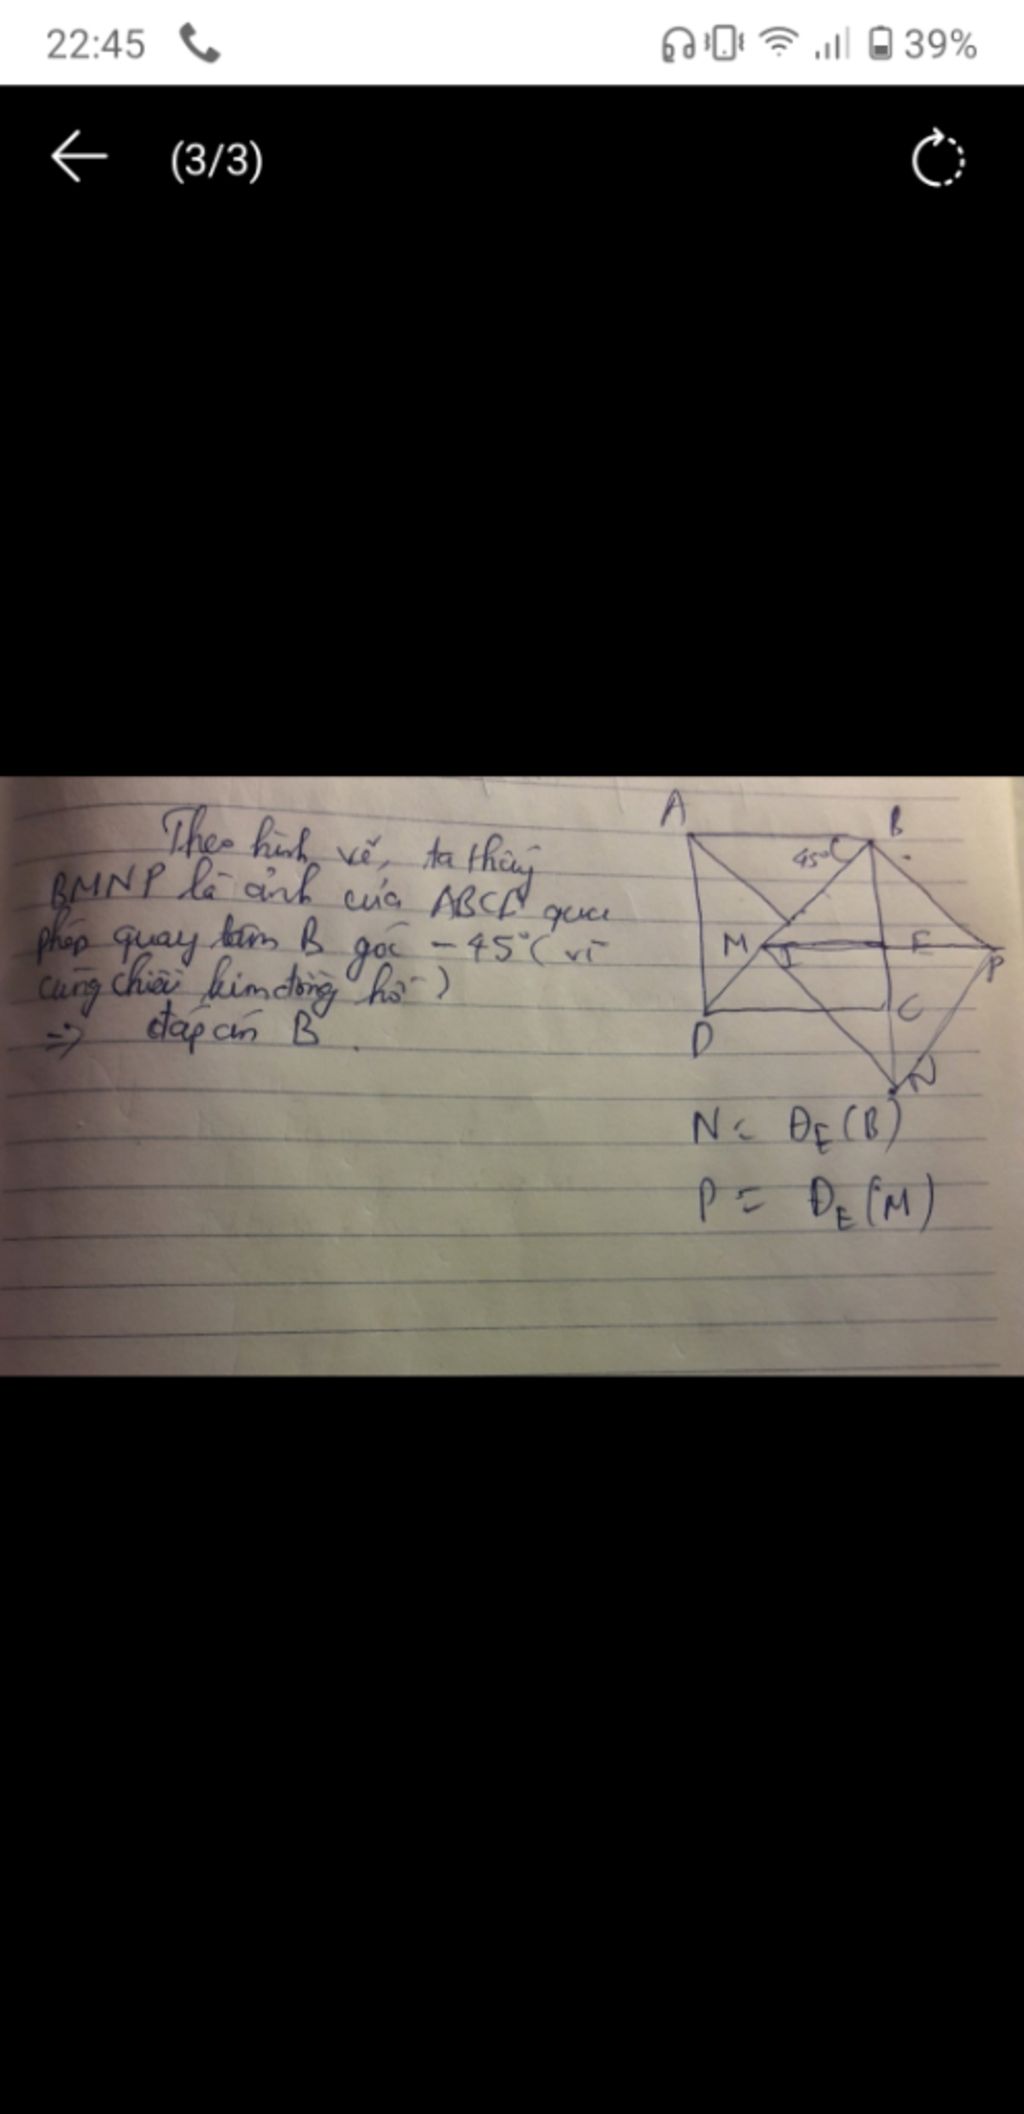 22:45
39%
(3/3)
Theo hình vẽ, ta thấy
BMNP là ảnh của ABCD qua
phép quay tâm B góc -45° (vì
cùng chiều kim đồng hồ)
=> đáp án B.
A
B
45°
M
I
E
P
D
C
N
N = ĐE(B)
P = ĐE(M)